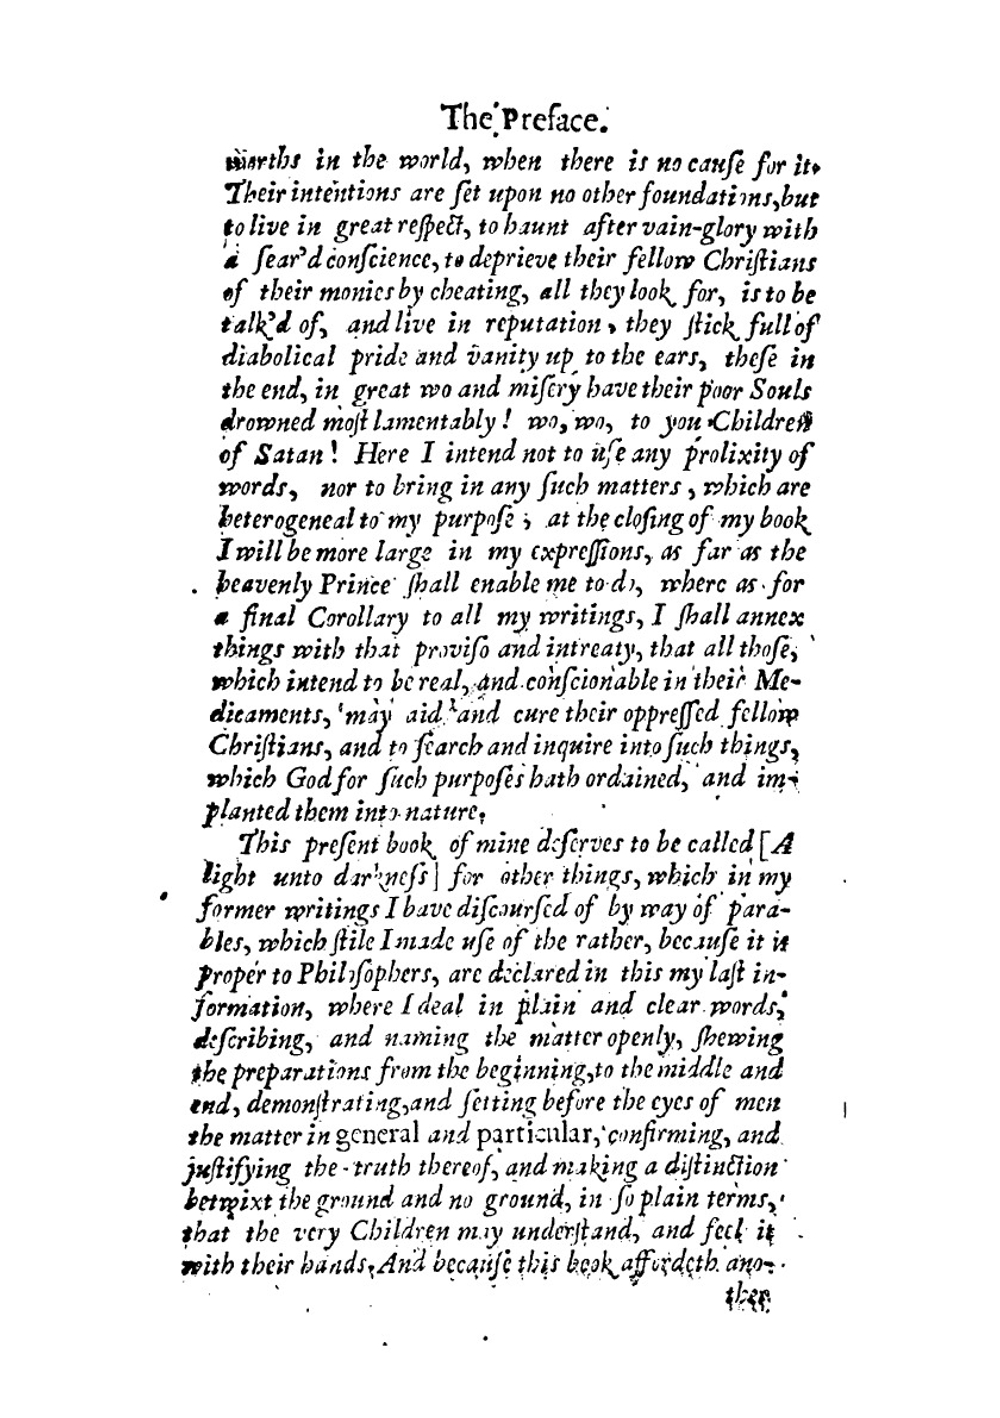 The Preface.
in the world, when there is no cauſe for it.
Their intentions are ſet upon no other foundations, but
to live in great reſpect, to haunt after vain-glory with
a ſear'd conſcience, to deprieve their fellow Chriſtians
of their monies by cheating, all they look for, is to be
talk'd of, and live in reputation, they ſtick full of
diabolical pride and vanity up to the ears, theſe in
the end, in great wo and miſery have their poor Souls
drowned moſt lamentably! wo, wo, to you Children
of Satan! Here I intend not to uſe any prolixity of
words, nor to bring in any ſuch matters, which are
heterogeneal to my purpoſe; at the cloſing of my book
I will be more large in my expreſſions, as far as the
heavenly Prince ſhall enable me to do, where as for
a final Corollary to all my writings, I ſhall annex
things with that proviſo and intreaty, that all thoſe,
which intend to be real, and conſcionable in their Me-
dicaments, may aid and cure their oppreſſed fellow
Chriſtians, and to ſearch and inquire into ſuch things,
which God for ſuch purpoſes hath ordained, and im-
planted them into nature.
This preſent book of mine deſerves to be called [A
light unto darkneſs] for other things, which in my
former writings I have diſcourſed of by way of para-
bles, which ſtile I made uſe of the rather, becauſe it is
proper to Philoſophers, are declared in this my laſt in-
formation, where I deal in plain and clear words,
deſcribing, and naming the matter openly, ſhewing
the preparations from the beginning, to the middle and
end, demonſtrating, and ſetting before the eyes of men
the matter in general and particular, confirming, and
juſtifying the truth thereof, and making a diſtinction
betwixt the ground and no ground, in ſo plain terms,
that the very Children may underſtand, and feel it
with their hands. And becauſe this book affordeth ano-
ther